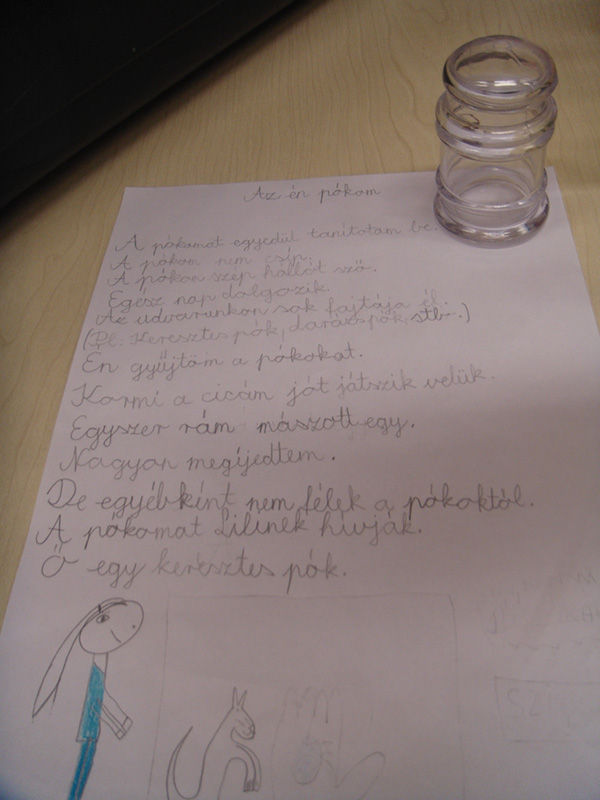 Az én pókom
A pókomat egyedül tanítotam be.
A pókom nem csíp.
A pókom szép hállót sző.
Egész nap dolgozik.
Az udvarunkon sok fajtája él.
(Pl: Keresztes pók, darázspók, stb.)
Én gyűjtöm a pókokat.
Karmi a cicám jót játszik velük.
Egyszer rám mászott egy.
Nagyon megijedtem.
De egyébként nem félek a pókoktól.
A pókomat Lilinek hívják.
Ő egy keresztes pók.